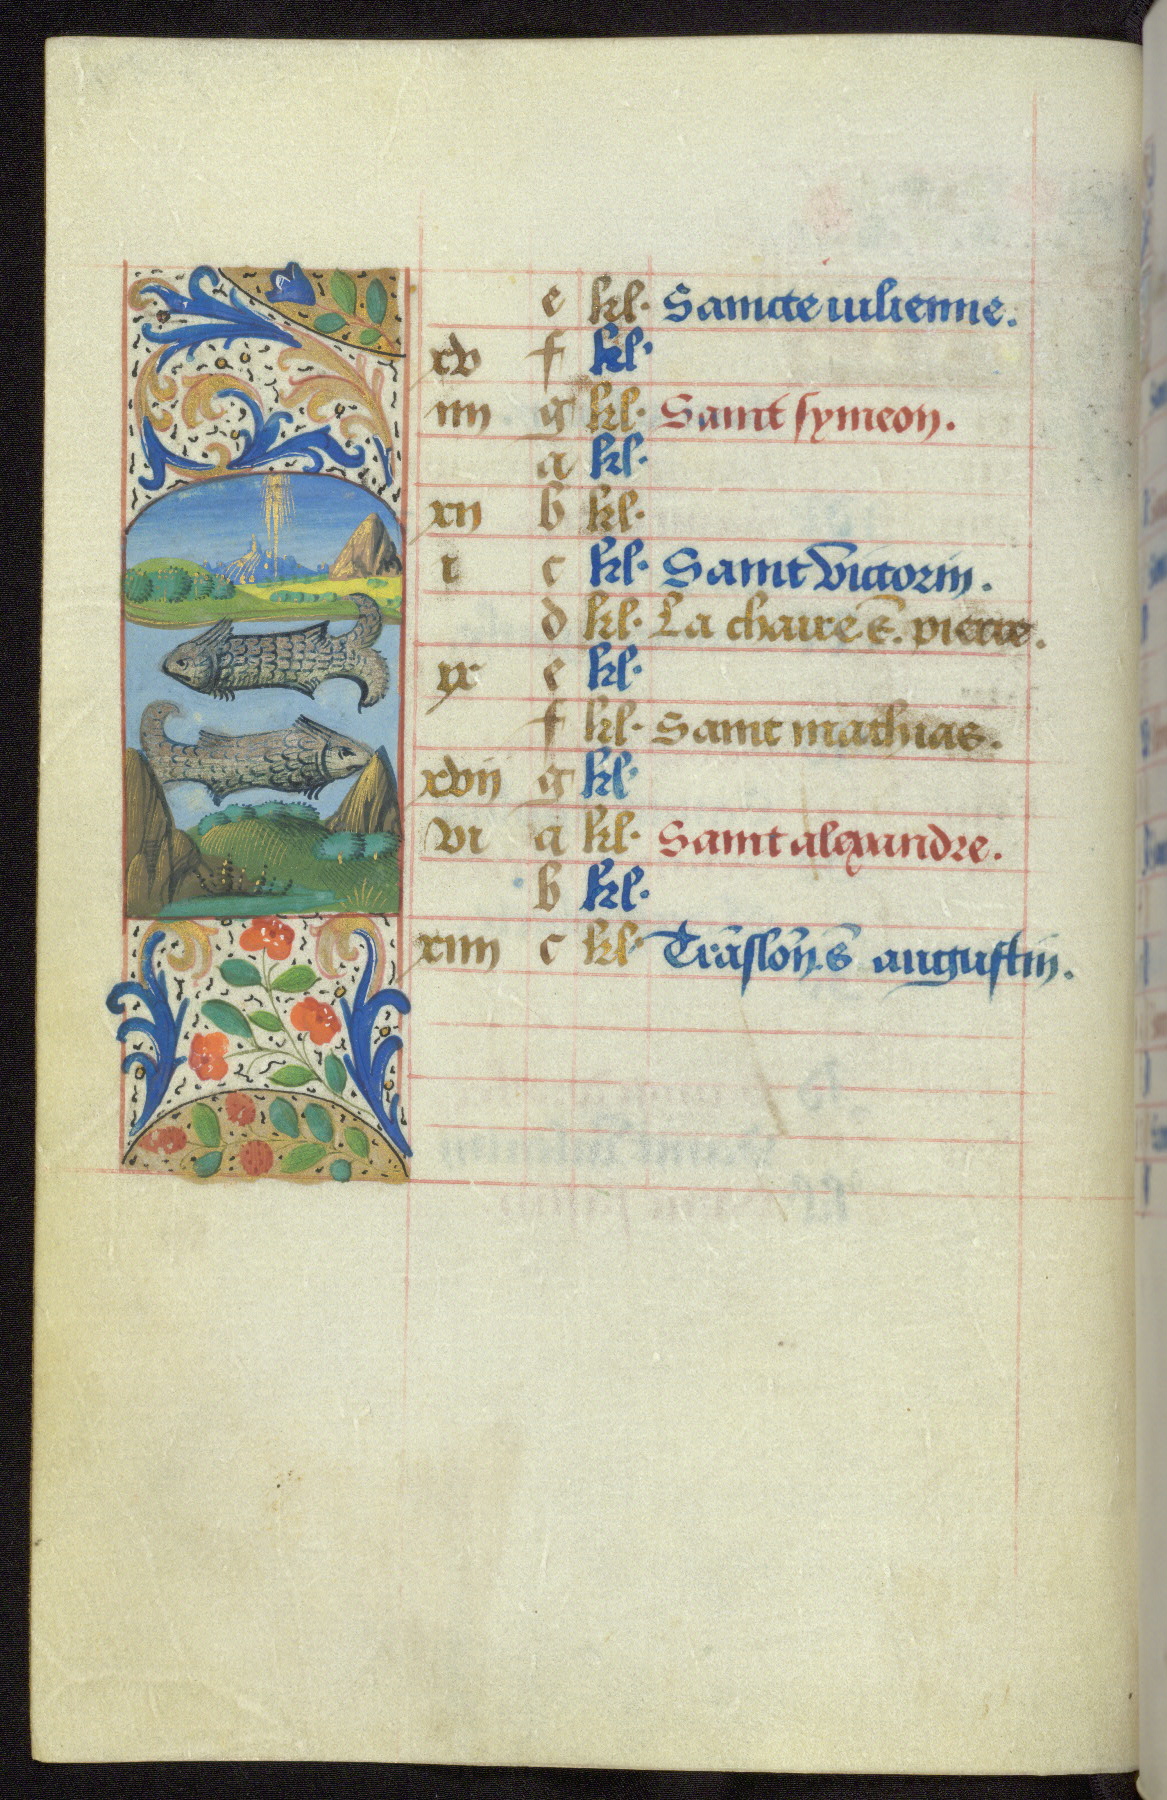 e kl. Saincte iulienne.
xv f kl.
iiii g kl. Saint symeon.
a kl.
xii b kl.
i c kl. Saint Victorin.
d kl. La chaire s. pierre.
ix e kl.
f kl. Saint mathias.
xvii g kl.
vi a kl. Saint alexandre.
b kl.
xiiii c kl. Trāslōn s̄ augustin.